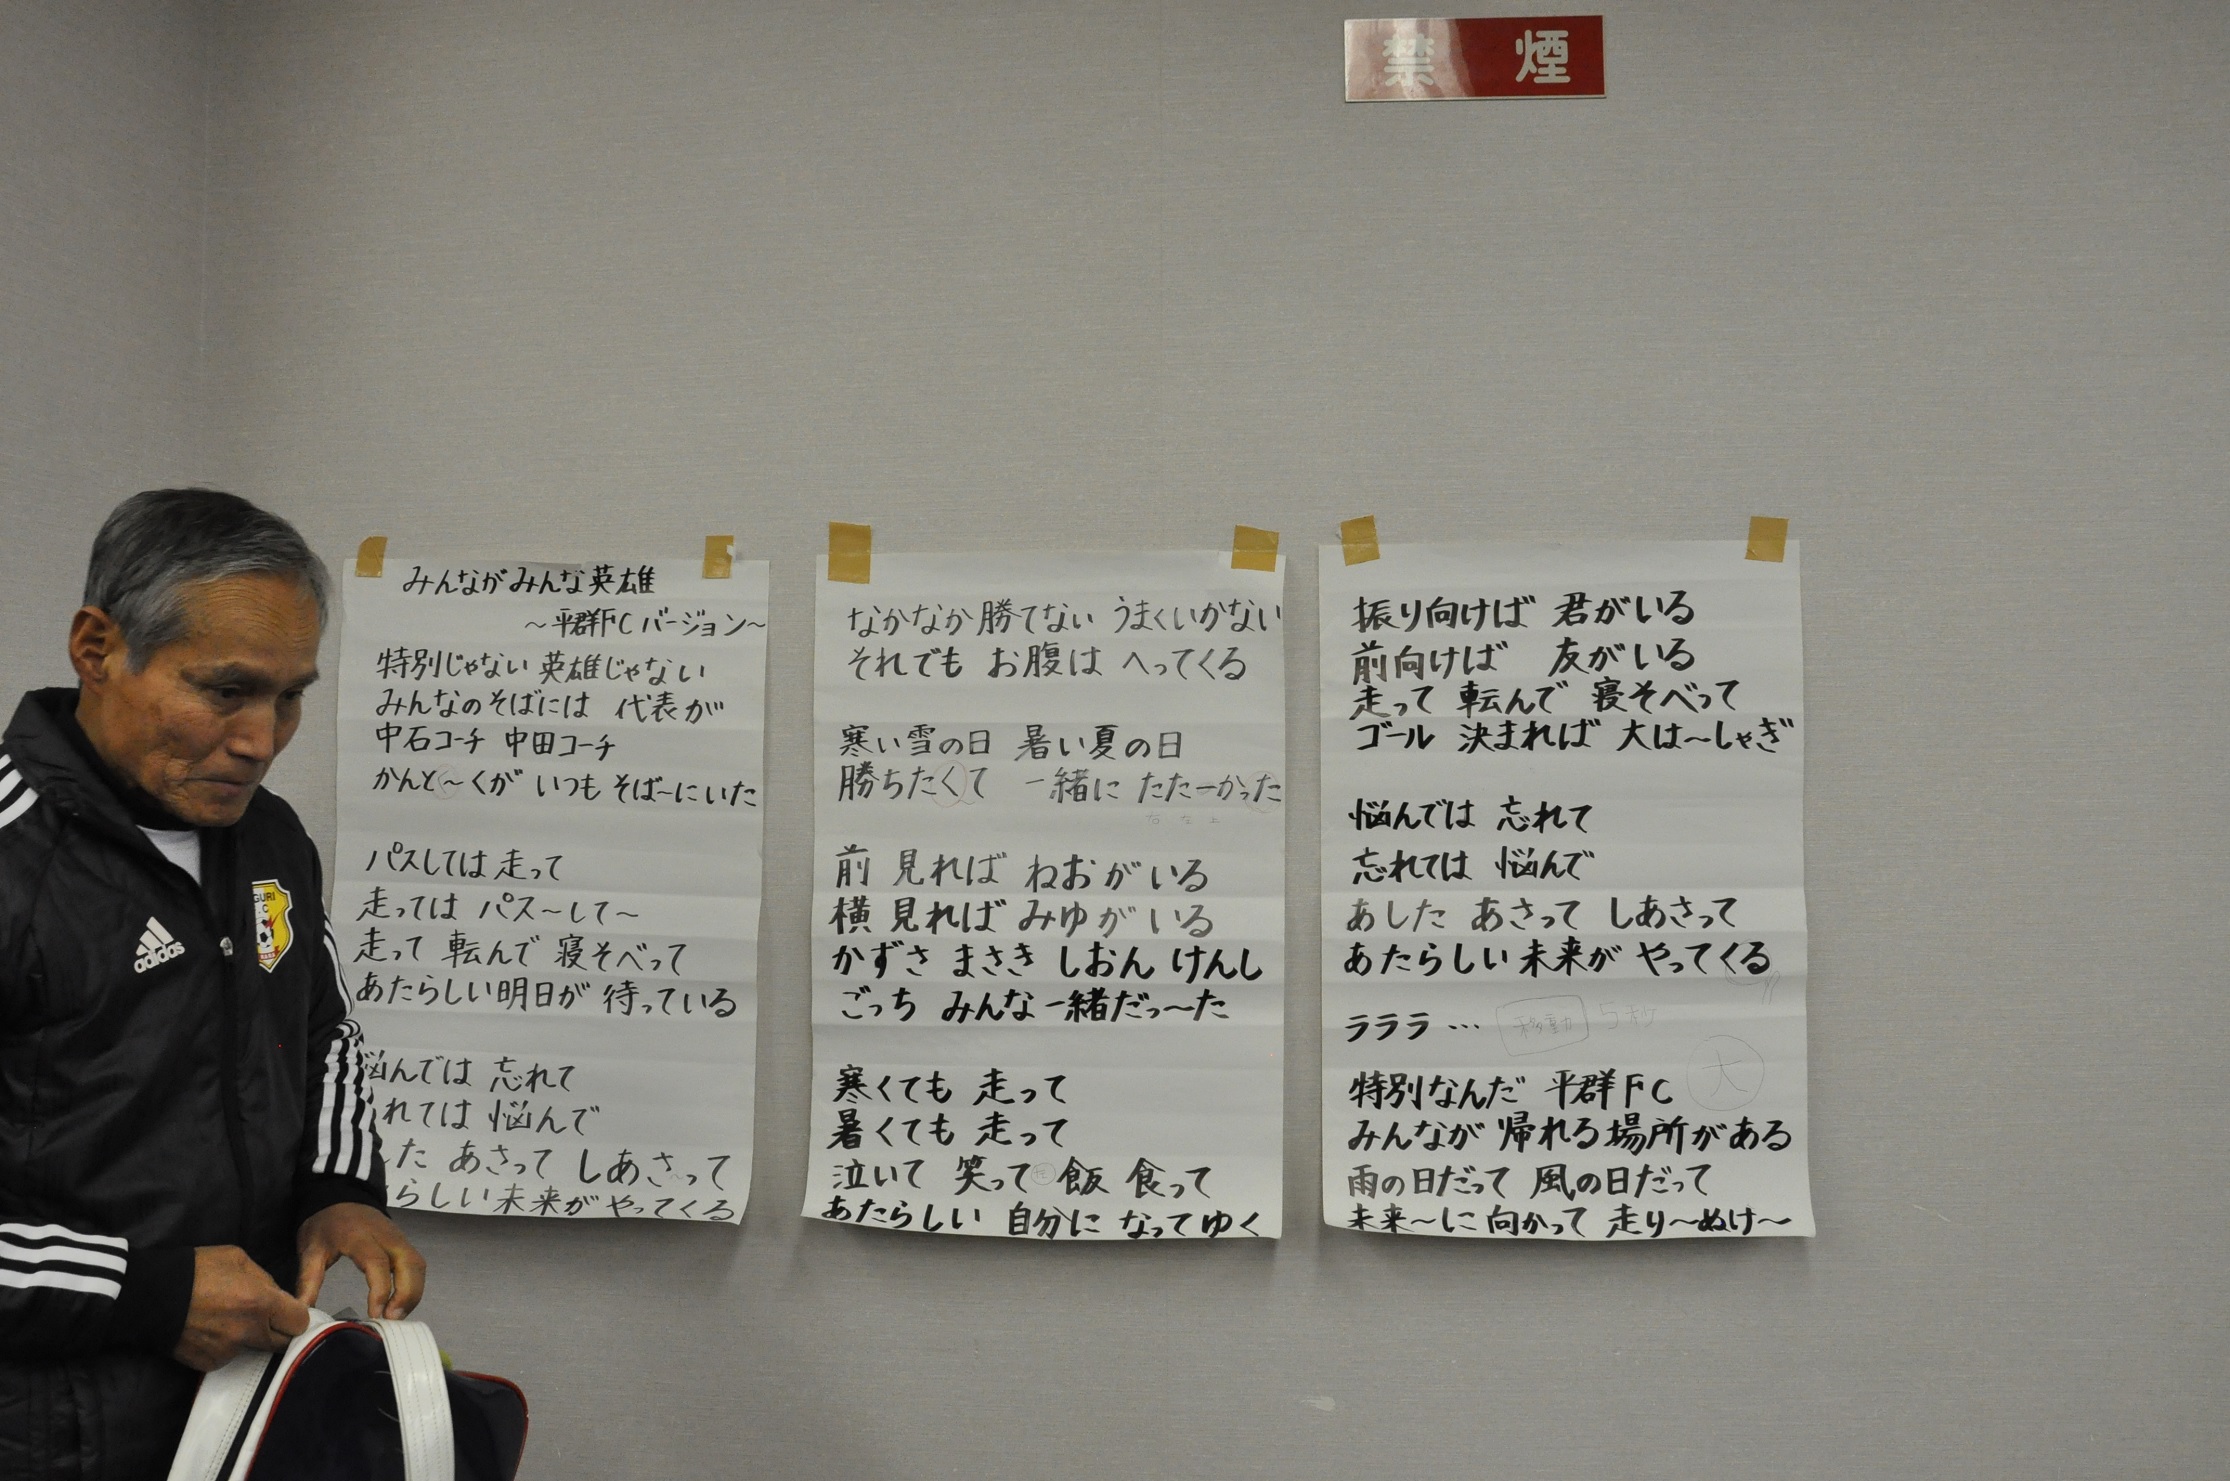 禁煙
みんながみんな英雄
～平群FCバージョン～
特別じゃない 英雄じゃない
みんなのそばには 代表が
中石コーチ 中田コーチ
かんと～くが いつも そば～にいた
パスしては 走って
走っては パス～して～
走って 転んで 寝そべって
あたらしい明日が 待っている
悩んでは 忘れて
れては 悩んで
した あさって しあさって
らしい 未来が やってくる
なかなか勝てない うまくいかない
それでも お腹は へってくる
寒い雪の日 暑い夏の日
勝ちたくて 一緒に たたーかった
右 左 上
前 見れば ねおがいる
横 見れば みゆがいる
かずさ まさき しおん けんし
ごっち みんな一緒だっ～た
寒くても 走って
暑くても 走って
泣いて 笑って 飯 食って
あたらしい 自分に なってゆく
振り向けば 君がいる
前向けば 友がいる
走って 転んで 寝そべって
ゴール 決まれば 大は～しゃぎ
悩んでは 忘れて
忘れては 悩んで
あした あさって しあさって
あたらしい 未来が やってくる
ラララ… 移動 5秒
大
特別なんだ 平群FC
みんなが 帰れる場所がある
雨の日だって 風の日だって
未来～に 向かって 走り～ぬけ～
adidas
GURI